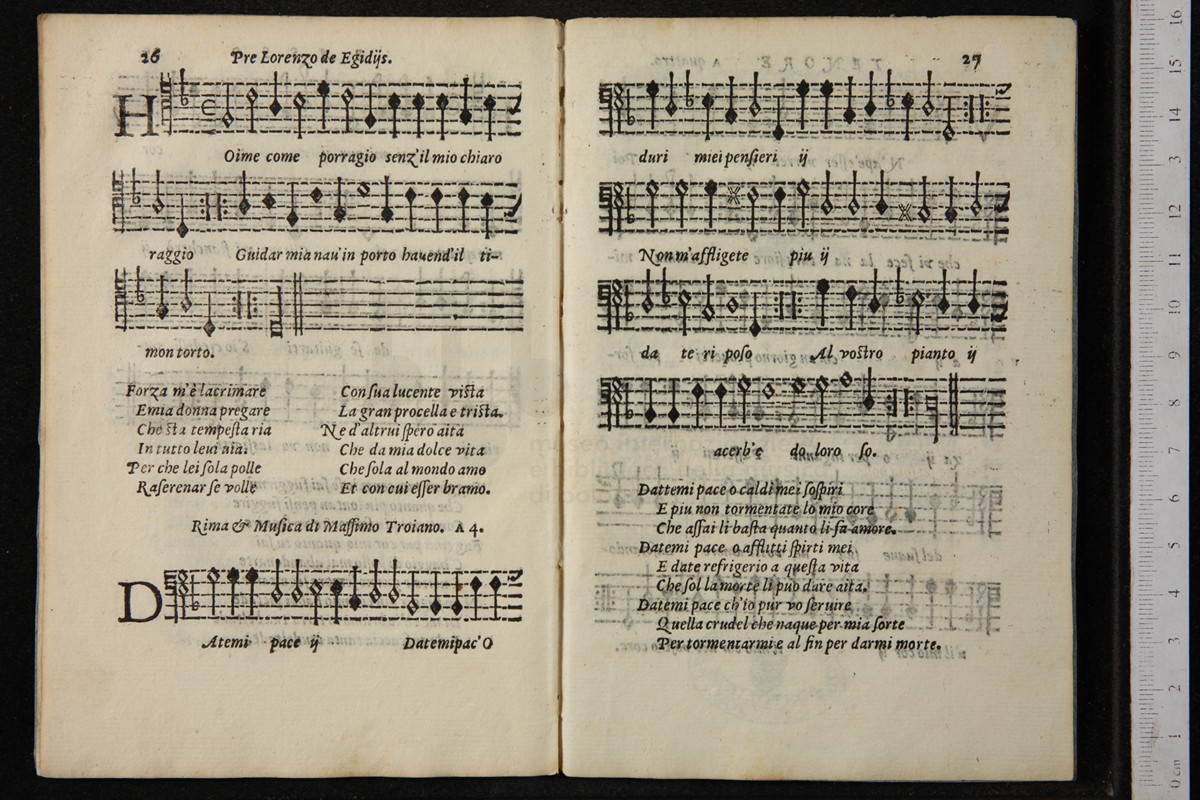 26
Pre Lorenzo de Egidijs.
H
Oime come porragio senz'il mio chiaro
raggio Guidar mia nau'in porto hauend'il ti-
mon torto.
Forza m'è lacrimare
Emia donna pregare
Che sta tempesta ria
In tutto leui uia.
Per che lei sola polle
Raserenar se volle
Con sua lucente vista
La gran procella e trista.
Ne d'altrui spero aita
Che da mia dolce vita
Che sola al mondo amo
Et con cui esser bramo.
Rima & Musica di Massimo Troiano. A 4.
D
Atemi pace ij Datemi pac' O
27
duri miei pensieri ij
Non m'affligete piu ij
da te ri poso Al vostro pianto ij
ij acerb'e do loro so.
Dattemi pace o caldi mei sospiri
E piu non tormentate lo mio core
Che assai li basta quanto li fa amore.
Datemi pace o afflitti spirti mei
E date refrigerio a questa vita
Che sol la morte li puo dare aita.
Datemi pace ch'io pur vo seruire
Quella crudel che naque per mia sorte
Per tormentarmi e al fin per darmi morte.
0 cm 1 2 3 4 5 6 7 8 9 10 11 12 13 14 15 16